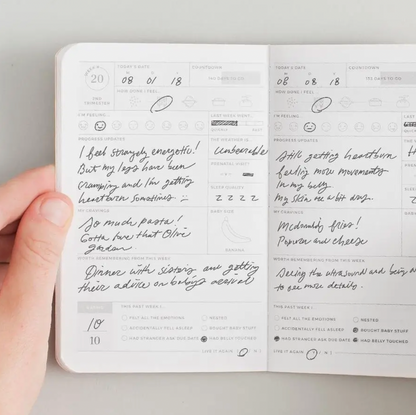 20
2ND TRIMESTER
TODAY'S DATE
08 01 18
COUNTDOWN
HOW DOES I FEEL
I'M FEELING
PROGRESS UPDATES
I feel strangely energetic!
But my legs have been
cramping and I'm getting
heartburn sometimes :-
THE WEATHER IS
unbearable
SLEEP QUALITY
Z Z Z Z
MY CRAVINGS
So much pasta!
Gotta love that Olive
Garden.
BABY SIZE
WORTH REMEMBERING FROM THIS WEEK
Dinner with sisters and getting
their advice on baby's arrival
10
10
THIS PAST WEEK I...
FELT ALL THE EMOTIONS
NESTED
ACCIDENTALLY FELL ASLEEP
BOUGHT BABY STUFF
HAD STRANGER DAD DOTE
HAD BELLY TOUCHED
LIVE IT AGAIN
TODAY'S DATE
08 08 18
COUNTDOWN
I'M FEELING
PROGRESS UPDATES
Still getting heartburn
feeling more movements
in my belly
My skin, are a bit dry.
MY CRAVINGS
McDonald's fries!
Paprika and cheese
WORTH REMEMBERING FROM THIS WEEK
Seeing the ultrasound and being
to see more details.
THIS PAST WEEK I...
FELT ALL THE EMOTIONS
NESTED
ACCIDENTALLY FELL ASLEEP
BOUGHT BABY STUFF
HAD BELLY TOUCHED
LIVE IT AGAIN